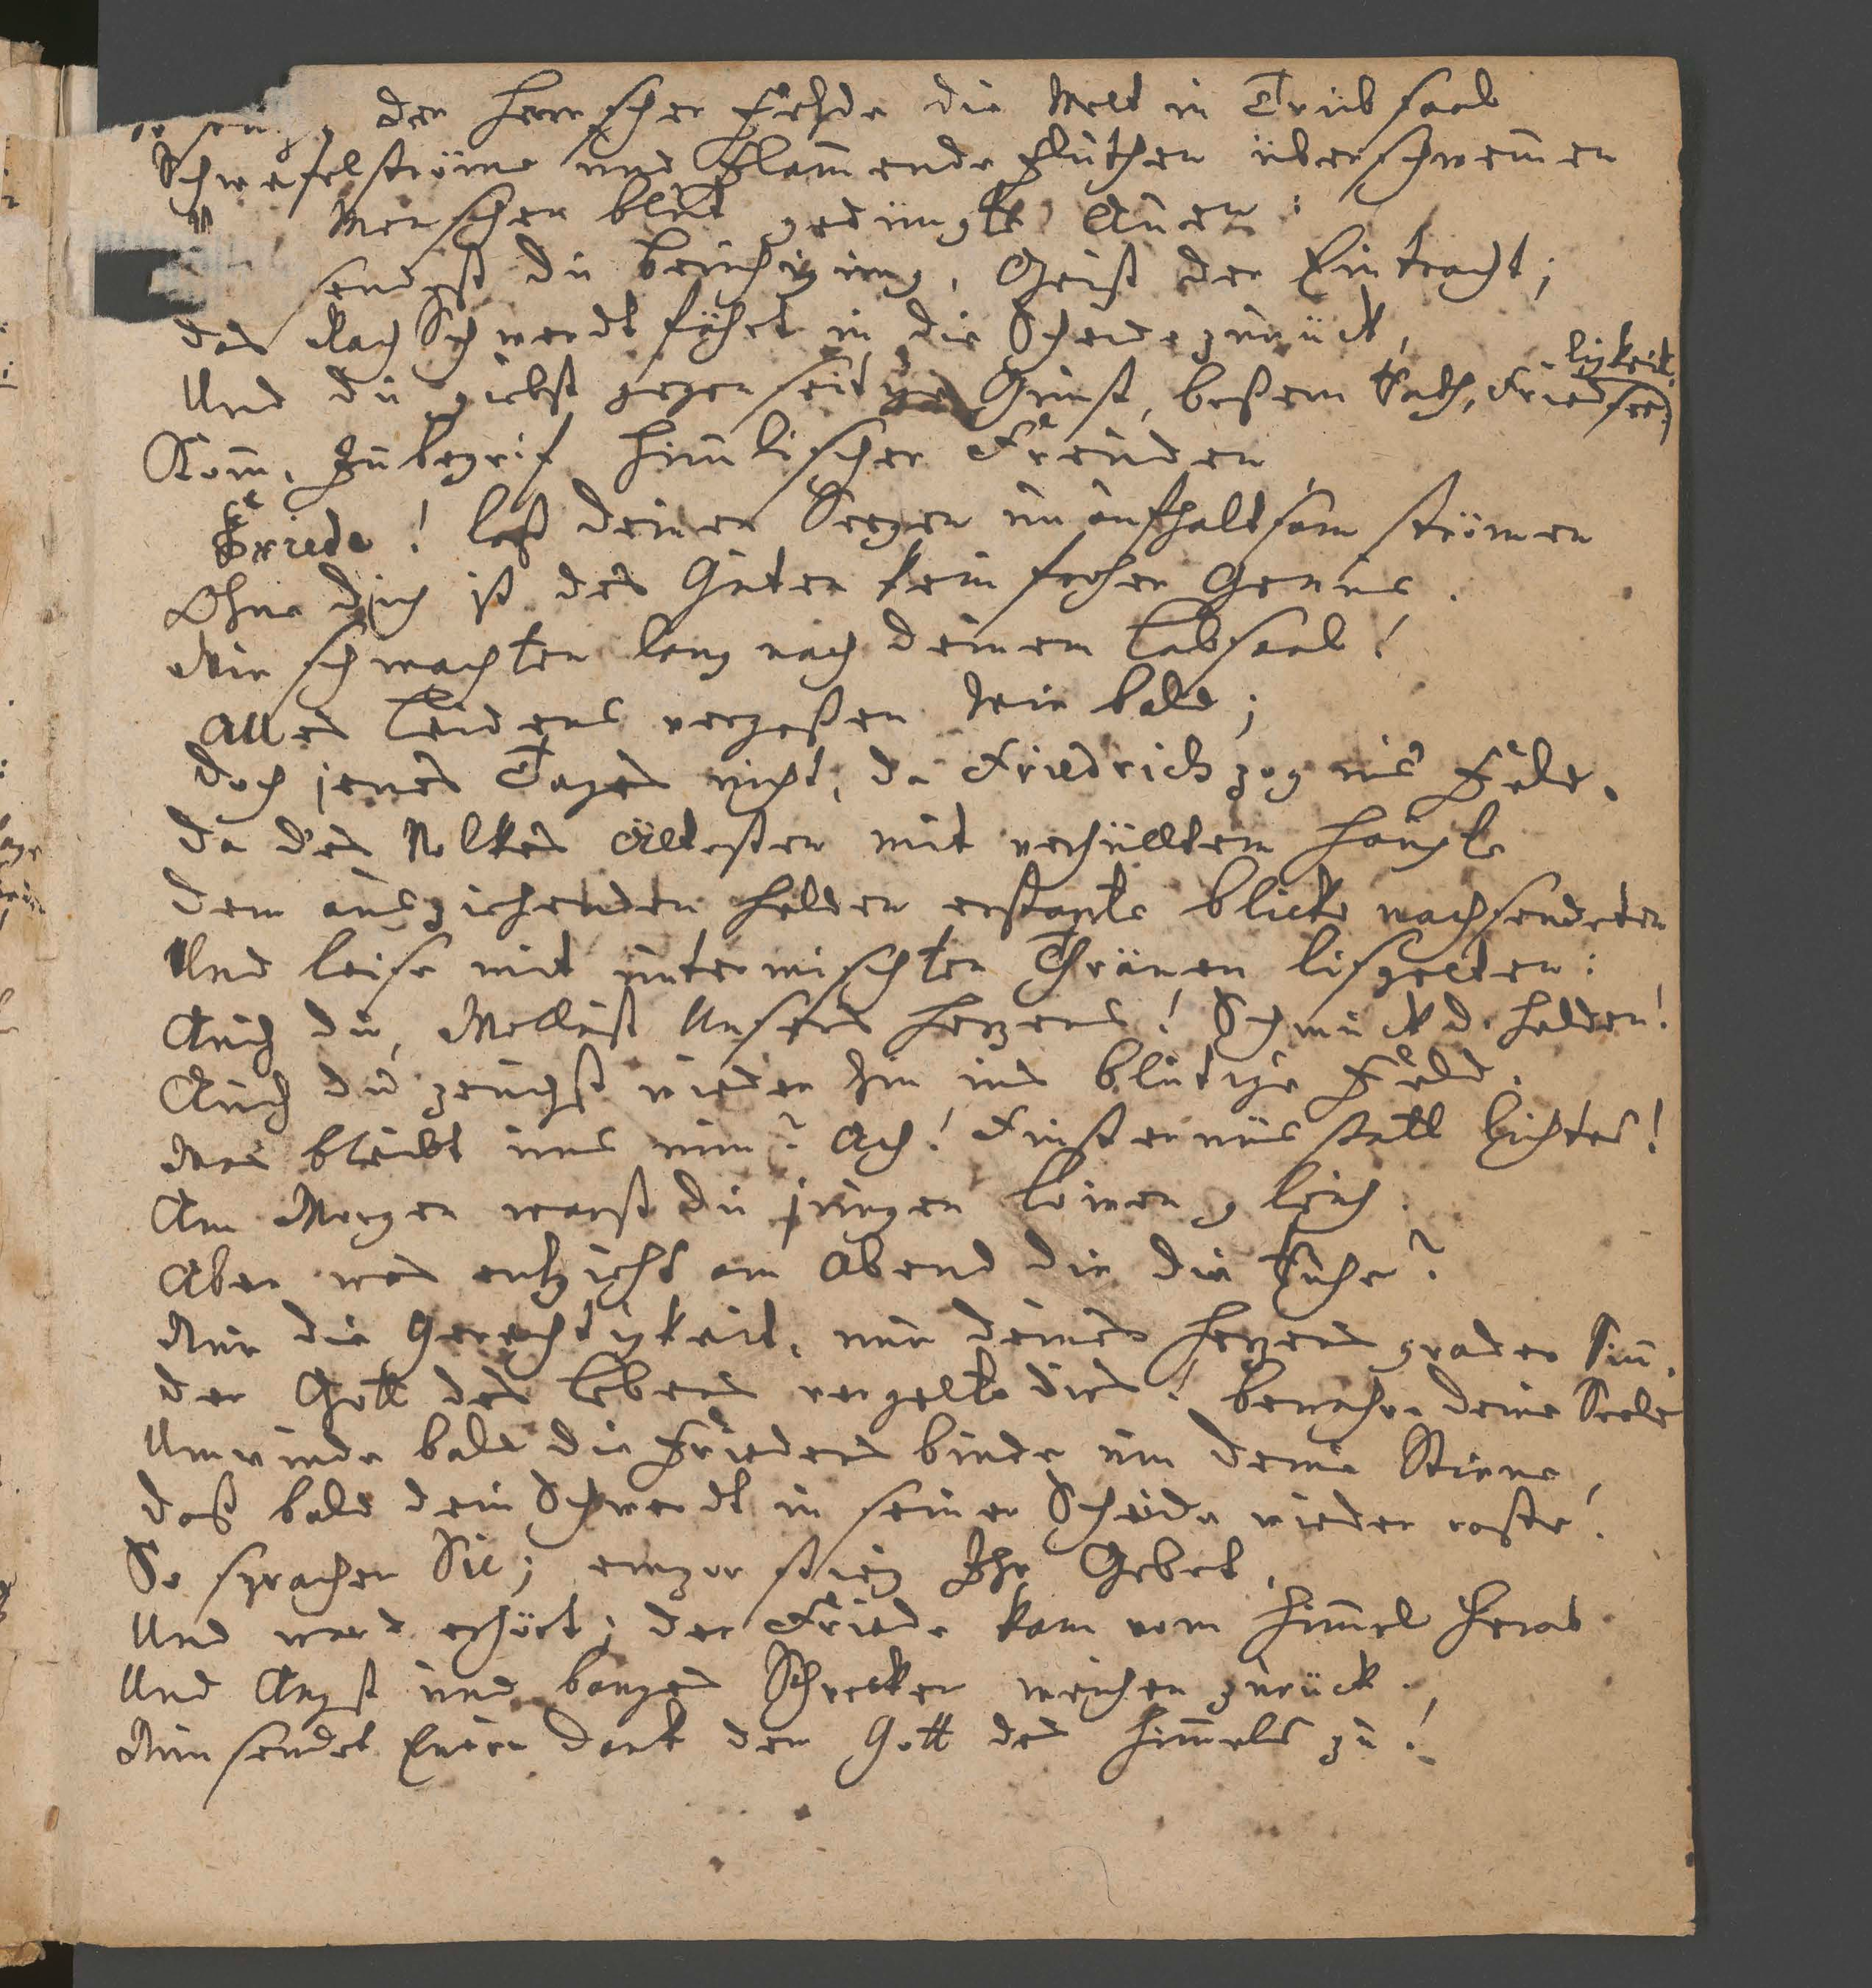 der Herrscher Fehde die Welt in Trübsaal
Schwefelströme und flam̄ende Fluthen überschwem̄en
Menschen blut gedüngte Auen:
sendest du Beruhigung, Geist der Eintracht;
das Rach Schwerdt fährt in die Scheide zurück,
Und du giebst gegenseitge Gunst, beßern Rath, Friedseeligkeit.
Kom̄, Inbegrif him̄lischer Freuden
Friede! laß deinen Seegen unaufhaltsam strömen
Ohne dich ist des Guten kein froher Genuus.
Wir schmachten lang nach deinem Labsaal!
Alles Leidens vergeßen wir bald;
doch jenes Tages nicht, da Friedrich zog ins Feld.
da des Volkes Ältesten mit verhülltem Haupte
dem ausziehenden Helden erstarrte Blicke nachsendeten
Und leise mit untermischten Thränen lispelten:
Auch du, Wollust Unsers Herzens! Schmuck d. Helden!
Auch du zeuchst wieder hin ins blutige Feld.
Was bleibt uns nun? Ach! Finsternis statt Lichtes!
Am Morgen warst du jungen Löwen gleich.
Aber was entzieht am Abend dir die Ruhe?
Nur die Gerechtigkeit, nur deines Herzens grader Sin̄.
der Gott des Lebens vergelte dies! bewahre deine Seele
Umwinde bald die Friedens binde um deine Stirne,
daß bald dein Schwerdt in seiner Scheide wieder roste!
So sprachen Sie; empor stieg Ihr Gebet,
Und ward erhört; der Friede kam vom Him̄el herab
Und Angst und banges Schrecken weichen zurück.
Nun sendet Euren Dank dem Gott des Him̄els zu!